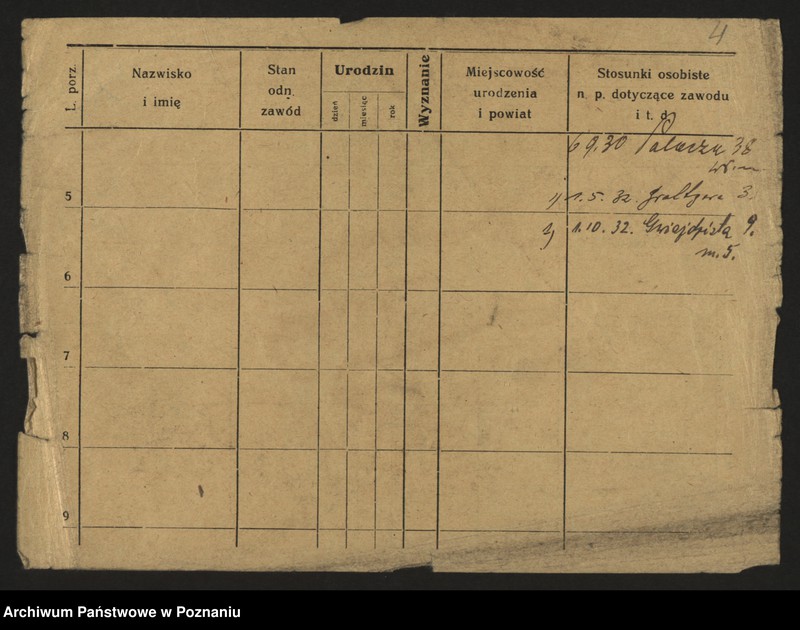 4
L. porz.
Nazwisko
i imię
Stan
odn.
zawód
Urodzin
dzień
miesiąc
rok
Wyznanie
Miejscowość
urodzenia
i powiat
Stosunki osobiste
n. p. dotyczące zawodu
i t. d.
6 9.30 Palacza 38
5
1.5. 32. 3.
1.10. 32. 9.
m. 5.
6
7
8
9
Archiwum Państwowe w Poznaniu